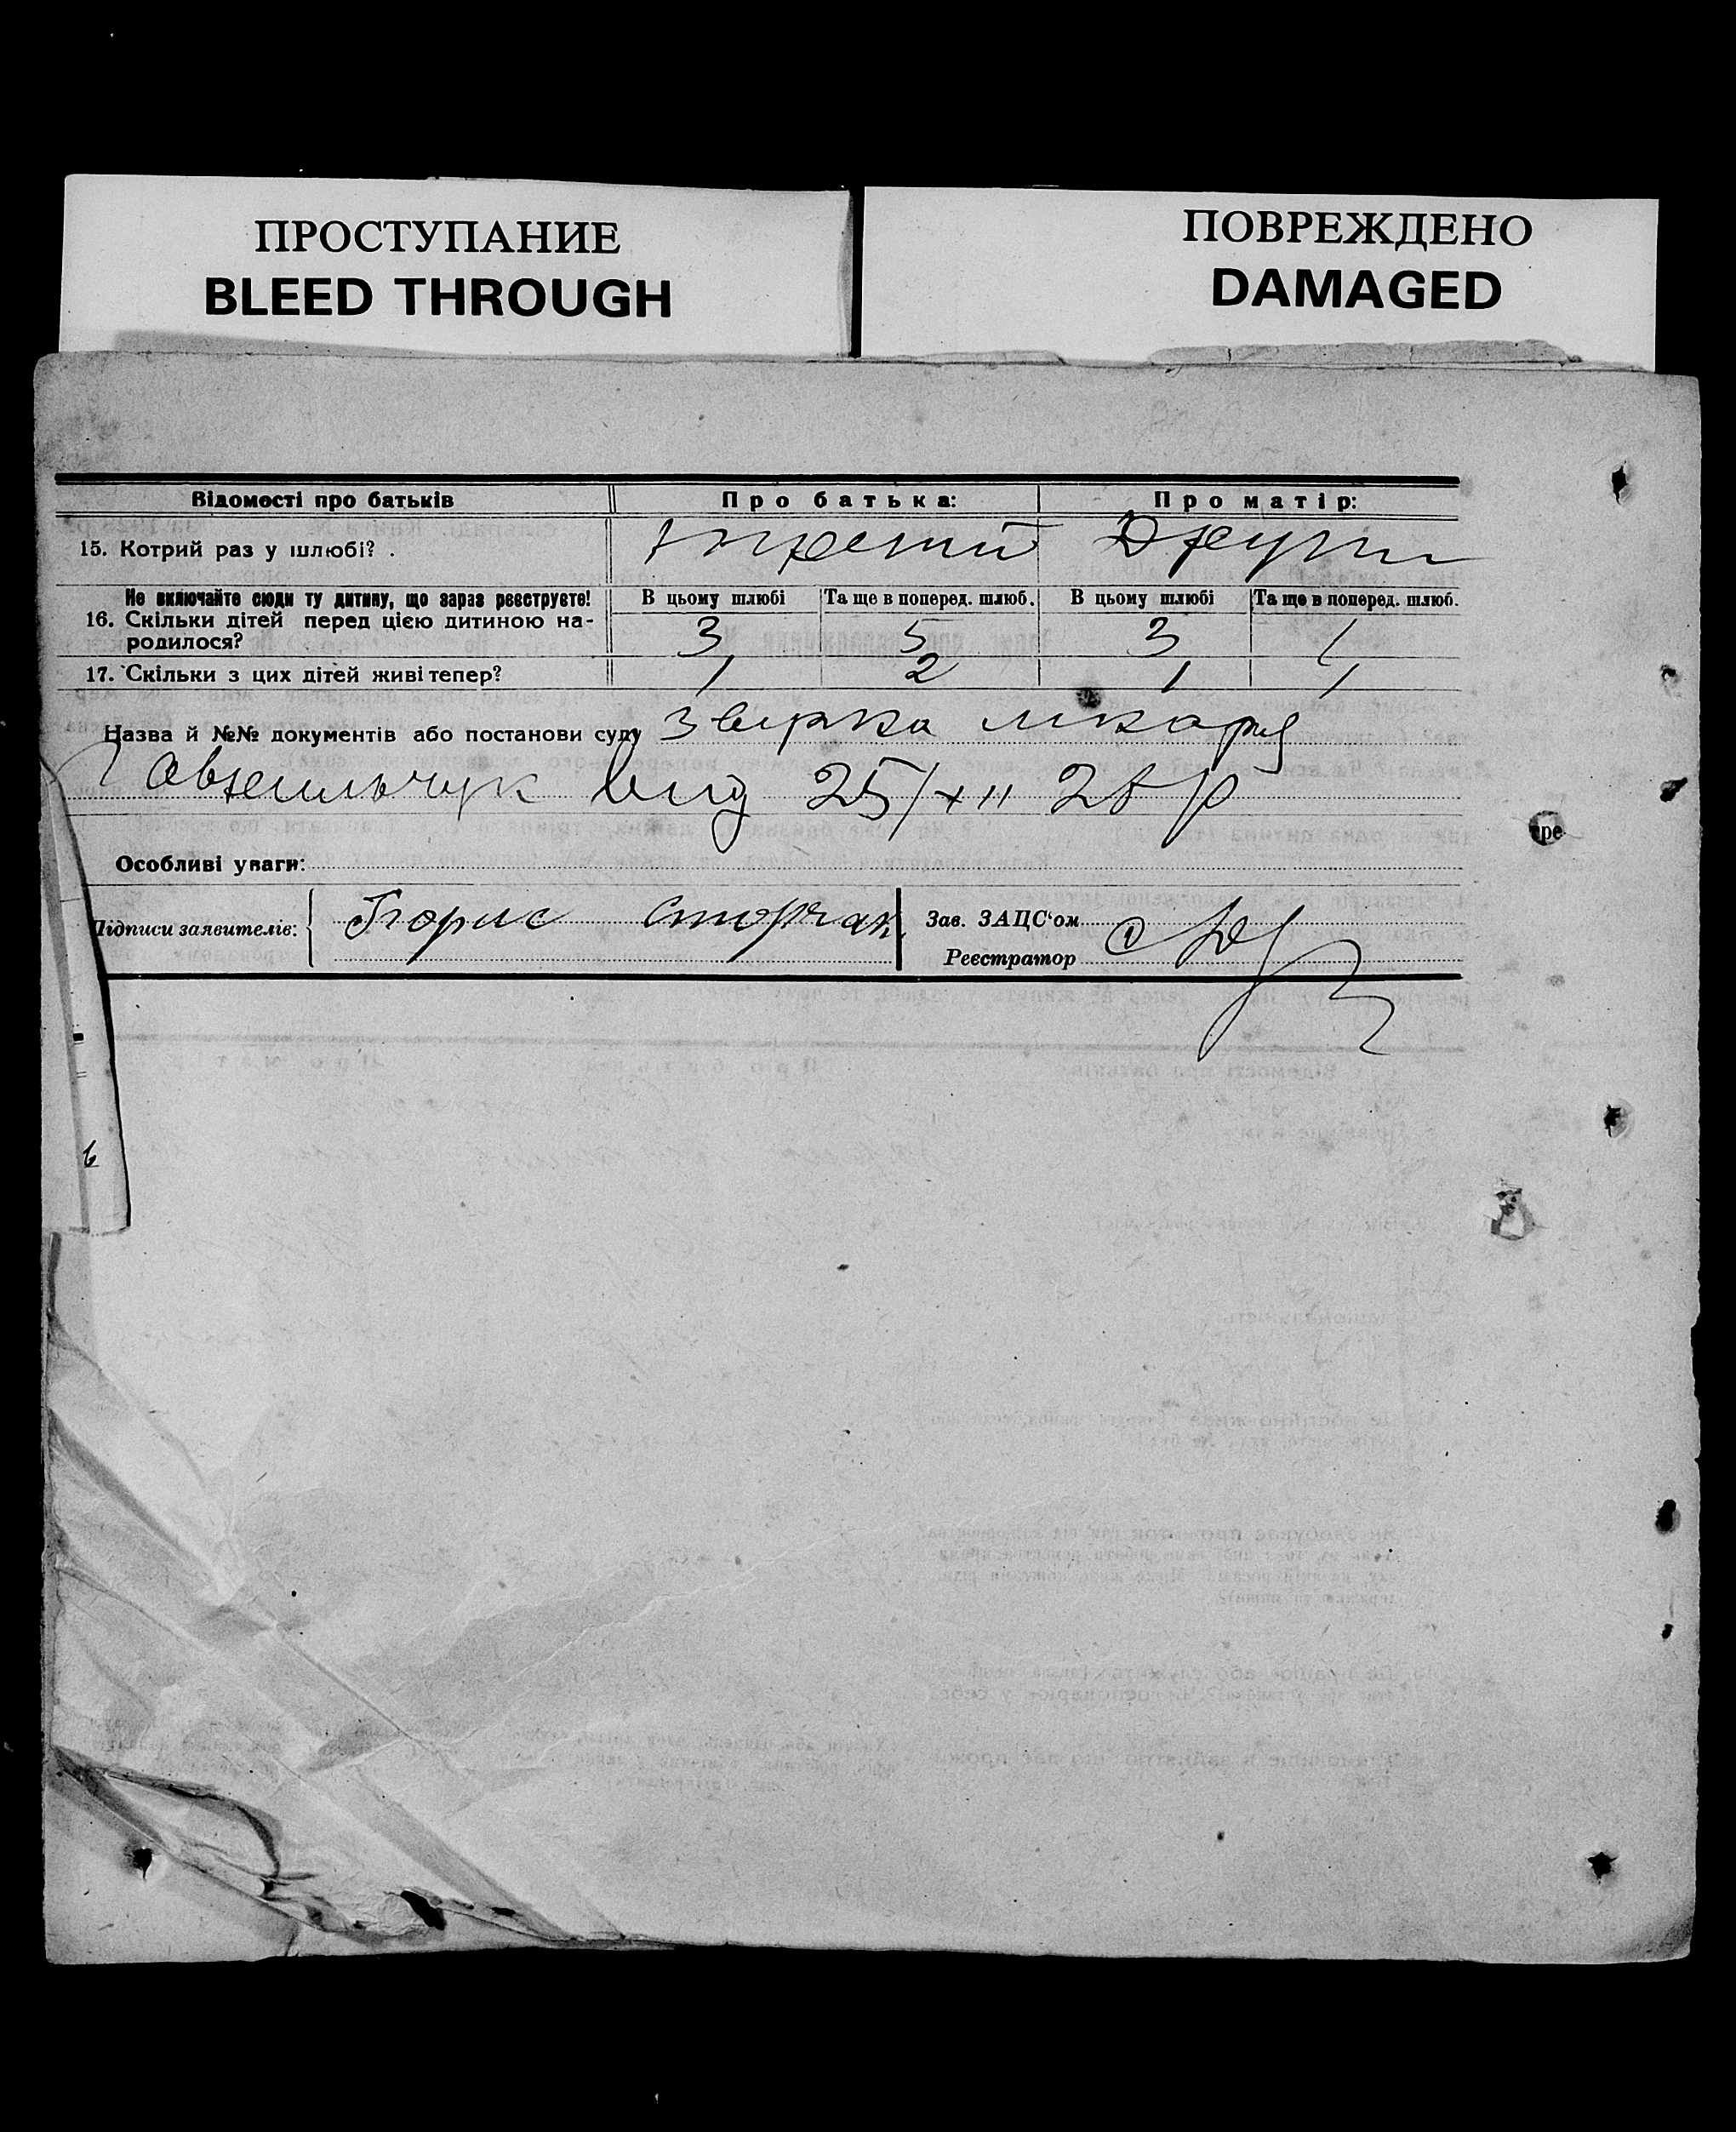 ПРОСТУПАНИЕ
BLEED THROUGH
ПОВРЕЖДЕНО
DAMAGED
Відомості про батьків Про батька: Про матір:
15. Котрий раз у шлюбі? . третий Други
Не включайте сюди ту дитину, що зараз реєструєте! В цьому шлюбі Та ще в поперед. шлюб. В цьому шлюбі Та ще в поперед. шлюб.
16. Скільки дітей перед цією дитиною на-
родилося? 3 5 3 1
17. Скільки з цих дітей живі тепер? 1 2 1 1
Назва й №№ документів або постанови суду
від 25/XII 28 р
Особливі уваги:
Підписи заявителів: Зав. ЗАЦС'ом
Реєстратор
ре